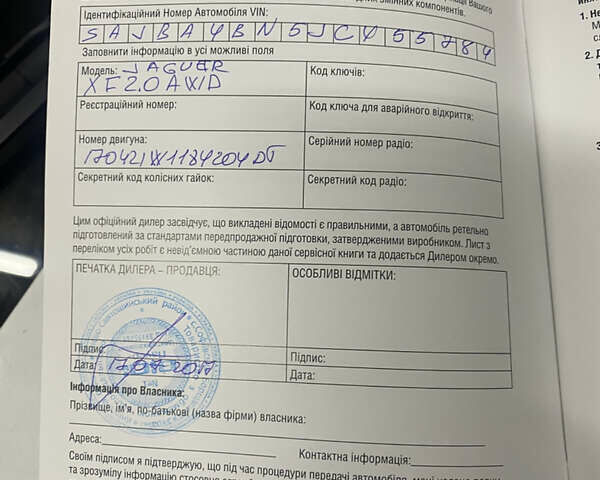 змінних компонентів.
Ідентифікаційний Номер Автомобіля VIN:
SAJBA4BN5JCY55784
Заповнити інформацію в усі можливі поля
Модель: JAGUER
XF 2.0 AWD
Код ключів:
Реєстраційний номер:
Код ключа для аварійного відкриття:
Номер двигуна:
Серійний номер радіо:
Секретний код колісних гайок:
Секретний код радіо:
Цим офіційний дилер засвідчує, що викладені відомості є правильними, а автомобіль ретельно
підготовлений за стандартами передпродажної підготовки, затвердженими виробником. Лист з
переліком усіх робіт є невід’ємною частиною даної сервісної книги та додається Дилером окремо.
ПЕЧАТКА ДИЛЕРА – ПРОДАВЦЯ:
ОСОБЛИВІ ВІДМІТКИ:
Підпис:
Підпис:
Дата:
Дата:
Інформація про Власника:
Прізвище, ім’я, по-батькові (назва фірми) власника:
Адреса:
Контактна інформація:
Своїм підписом я підтверджую, що під час процедури передачі автомобіля, мені надано
та зрозумілу інформацію